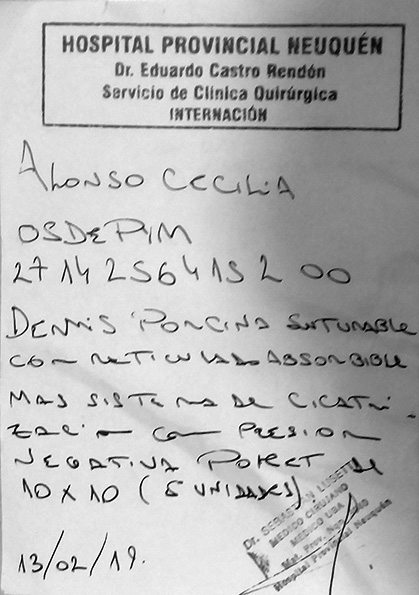 HOSPITAL PROVINCIAL NEUQUÉN
Dr. Eduardo Castro Rendón
Servicio de Clínica Quirúrgica
INTERNACIÓN
ALONSO CECILIA
OSDEPYM
27 14 256415 2 00
DERMIS PORCINA SUTURABLE
CON RETICULADO ABSORBIBLE
MAS SISTEMA DE CICATRI
ZACION CON PRESION
NEGATIVA POKET DE
10 X 10 (5 UNIDADES)
Dr. SEBASTIAN LUSETTI
MEDICO CIRUJANO
MEDICO UBA
Mat. Prov.
Hospital Provincial Neuquén
13/02/19.